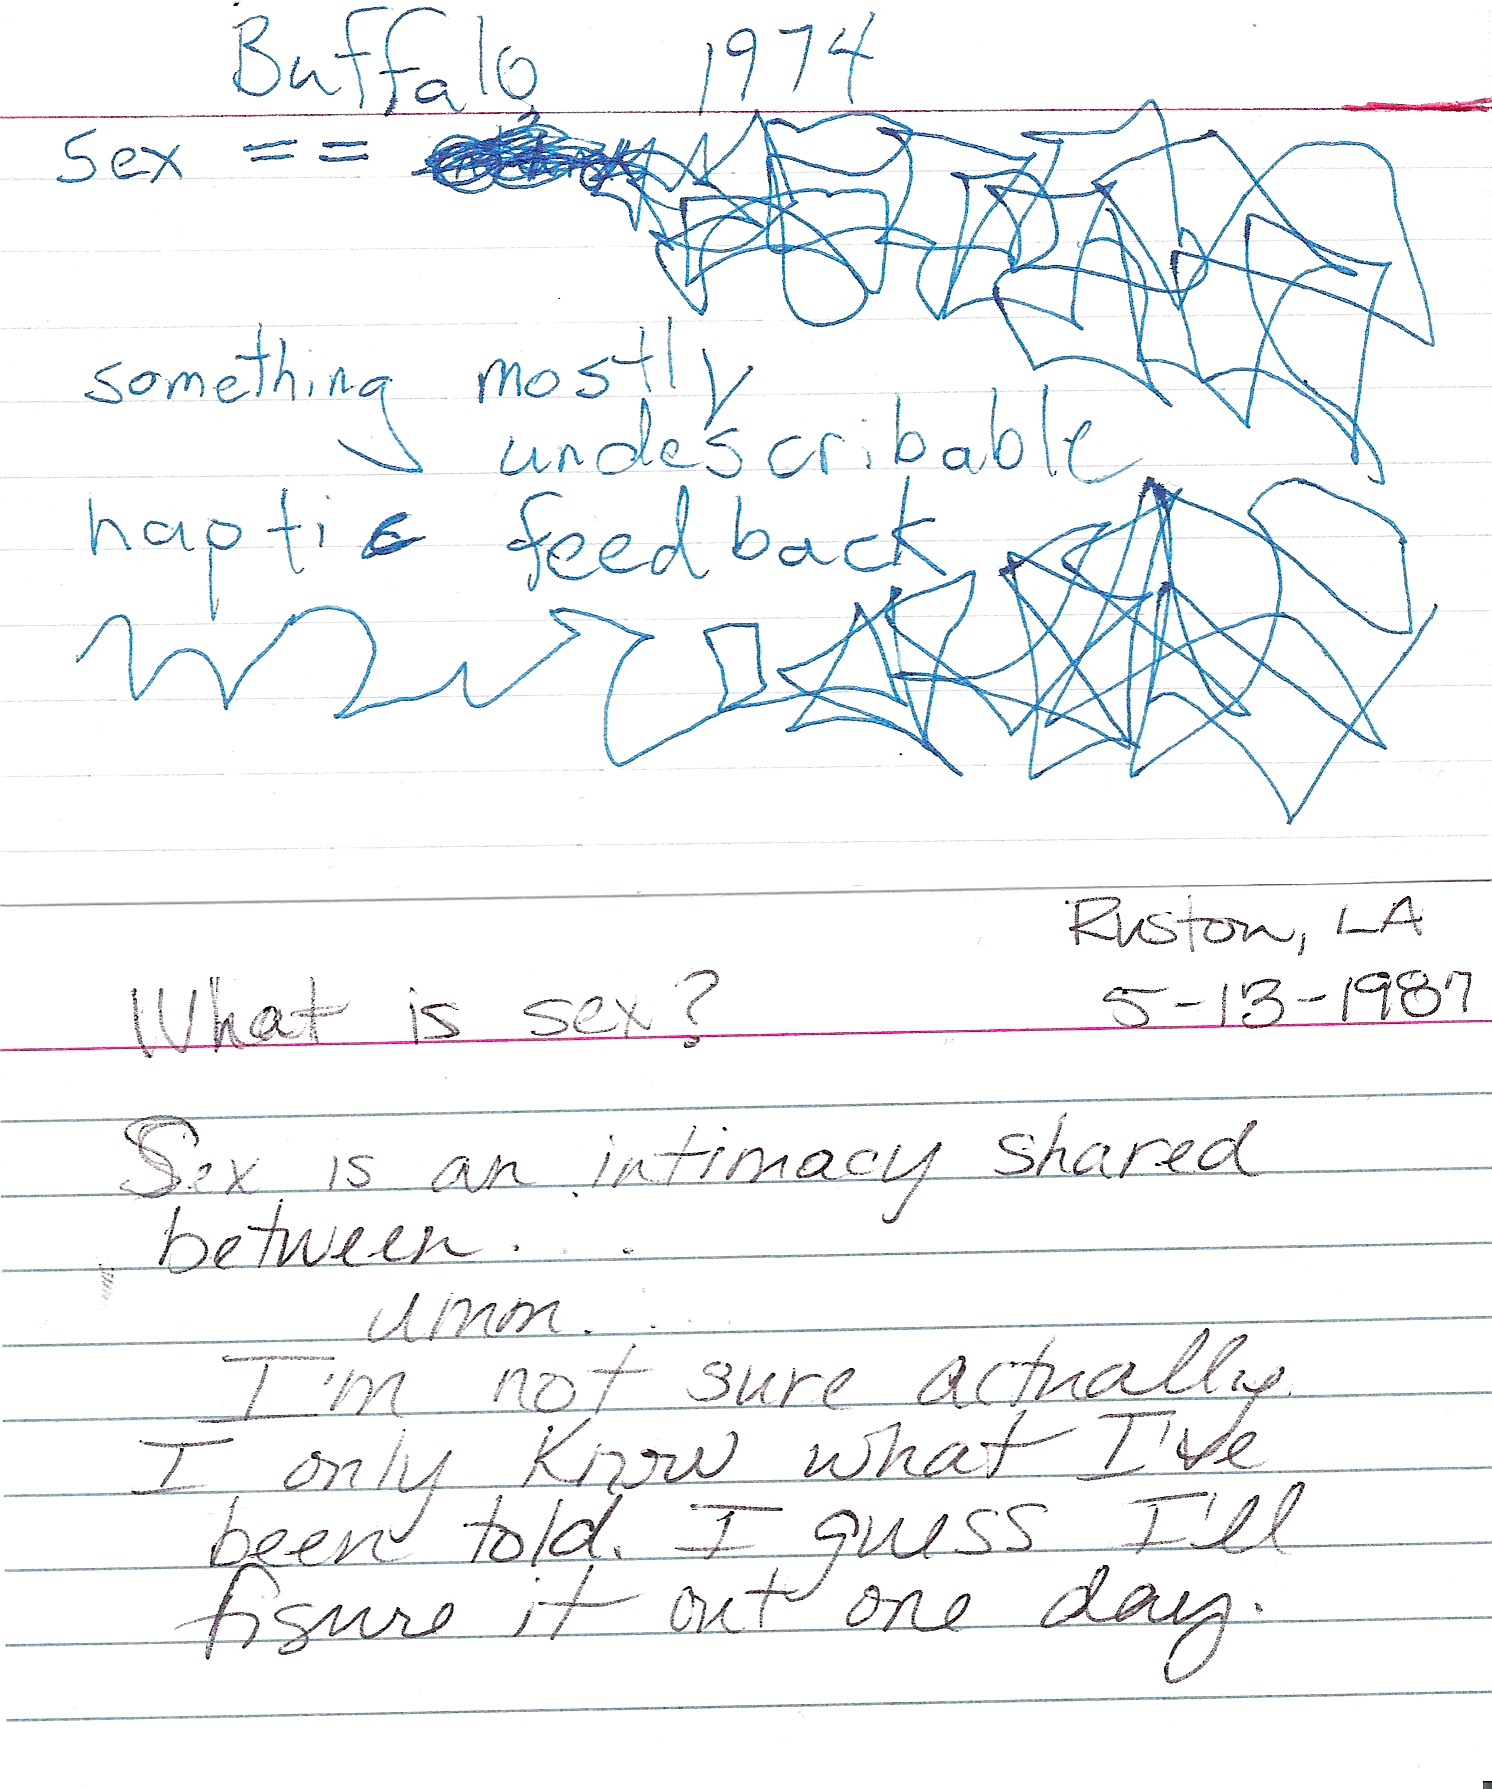 Buffalo 1974
Sex ==
something mostly
undescribable
haptic feedback
Ruston, LA
What is sex? 5-13-1987
Sex is an intimacy shared
between...
umm...
I'm not sure actually.
I only know what I've
been told. I guess I'll
figure it out one day.